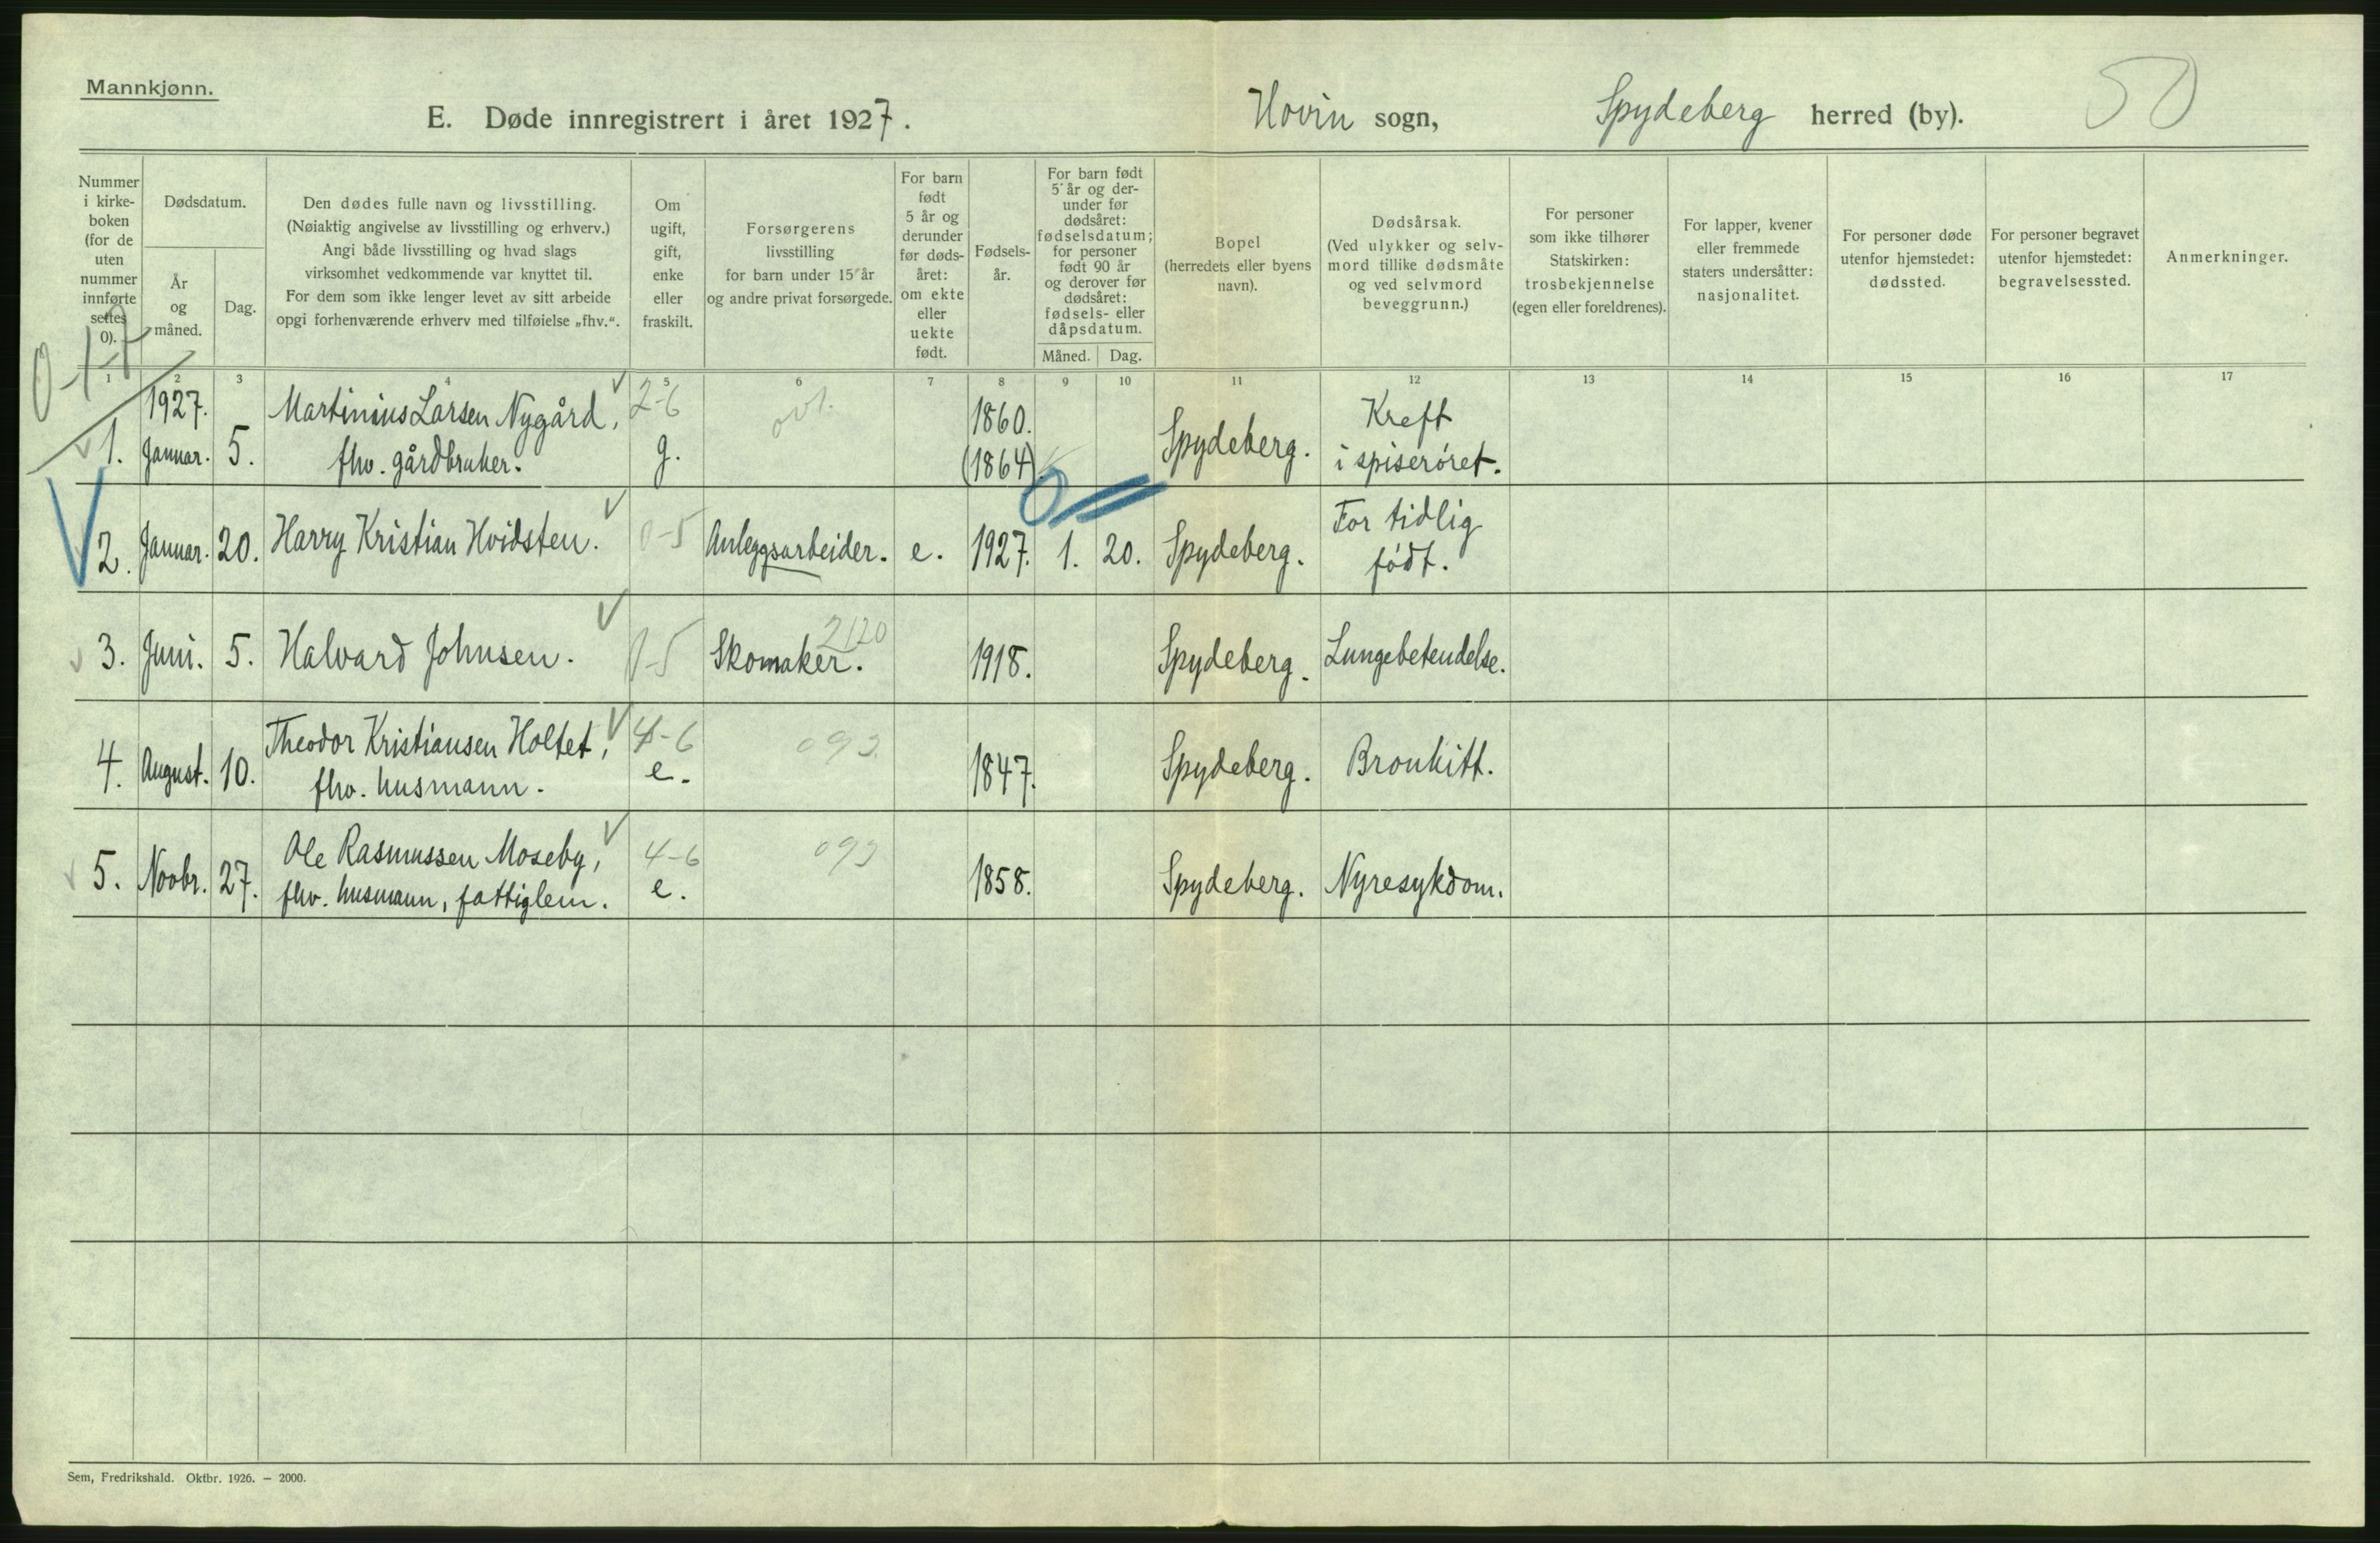 Mannkjønn.
E. Døde innregistrert i året 1927. Hovin sogn, Spydeberg herred (by). 50
Nummer
i kirke-
boken
(for de
uten
nummer
innførte
settes
0).
Dødsdatum.
År
og
måned.
Dag.
Den dødes fulle navn og livsstilling.
(Nøiaktig angivelse av livsstilling og erhverv.)
Angi både livsstilling og hvad slags
virksomhet vedkommende var knyttet til.
For dem som ikke lenger levet av sitt arbeide
opgi forhenværende erhverv med tilføielse „fhv.“.
Om
ugift,
gift,
enke
eller
fraskilt.
Forsørgerens
livsstilling
for barn under 15 år
og andre privat forsørgede.
For barn
født
5 år og
derunder
før døds-
året:
om ekte
eller
uekte
født.
Fødsels-
år.
For barn født
5 år og der-
under før
dødsåret:
fødselsdatum;
for personer
født 90 år
og derover før
dødsåret:
fødsels- eller
dåpsdatum.
Måned. Dag.
Bopel
(herredets eller byens
navn).
Dødsårsak.
(Ved ulykker og selv-
mord tillike dødsmåte
og ved selvmord
beveggrunn.)
For personer
som ikke tilhører
Statskirken:
trosbekjennelse
(egen eller foreldrenes).
For lapper, kvener
eller fremmede
staters undersåtter:
nasjonalitet.
For personer døde
utenfor hjemstedet:
dødssted.
For personer begravet
utenfor hjemstedet:
begravelsessted.
Anmerkninger.
1 2 3 4 5 6 7 8 9 10 11 12 13 14 15 16 17
1927. Martinius Larsen Nygård, 2-6 1860. Kreft
1. Januar. 5. fhv. gårdbruker. g. (1864) Spydeberg. i spiserøret.
2. Januar. 20. Harry Kristian Hvidsten. 0-5 Anleggsarbeider. e. 1927. 1. 20. Spydeberg. For tidlig
født.
3. Juni. 5. Halvard Johnsen. 0-5 Skomaker. 2120 1918. Spydeberg. Lungebetendelse.
4. August. 10. Theodor Kristiansen Holtet, 4-6 093 1847. Spydeberg. Bronkitt.
fhv. husmann. e.
5. Novbr. 27. Ole Rasmussen Moseby, 4-6 093 1858. Spydeberg. Nyresykdom.
fhv. husmann, fattiglem. e.
Sem, Fredrikshald. Oktbr. 1926. – 2000.